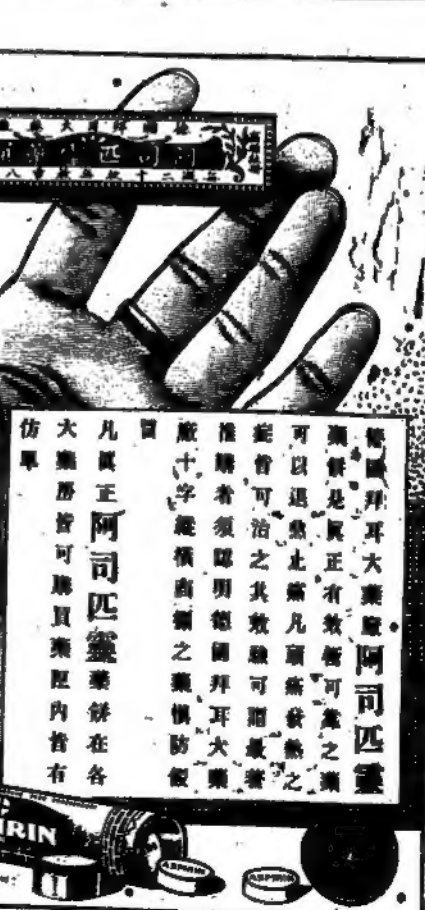 司匹
德國拜耳大藥廠阿司匹靈
藥餅是眞正有效可靠之藥
可以退熱止痛凡頭痛發熱之
症皆可治之其效驗可謂最著
惟購者須認明德國拜耳大藥
廠十字縱橫商標之藥愼防假
冒
凡眞正阿司匹靈藥餅在各
大藥房皆可購買藥匣內皆有
仿單
RIN
ASPIRIN
ASPIRIN